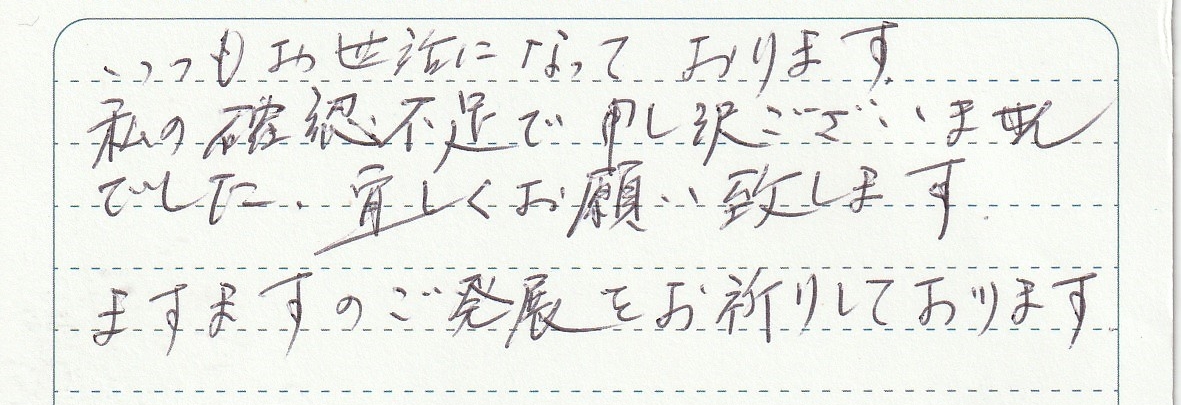 いつもお世話になっております。
私の確認不足で申し訳ございません
でした。宜しくお願い致します。
ますますのご発展をお祈りしております